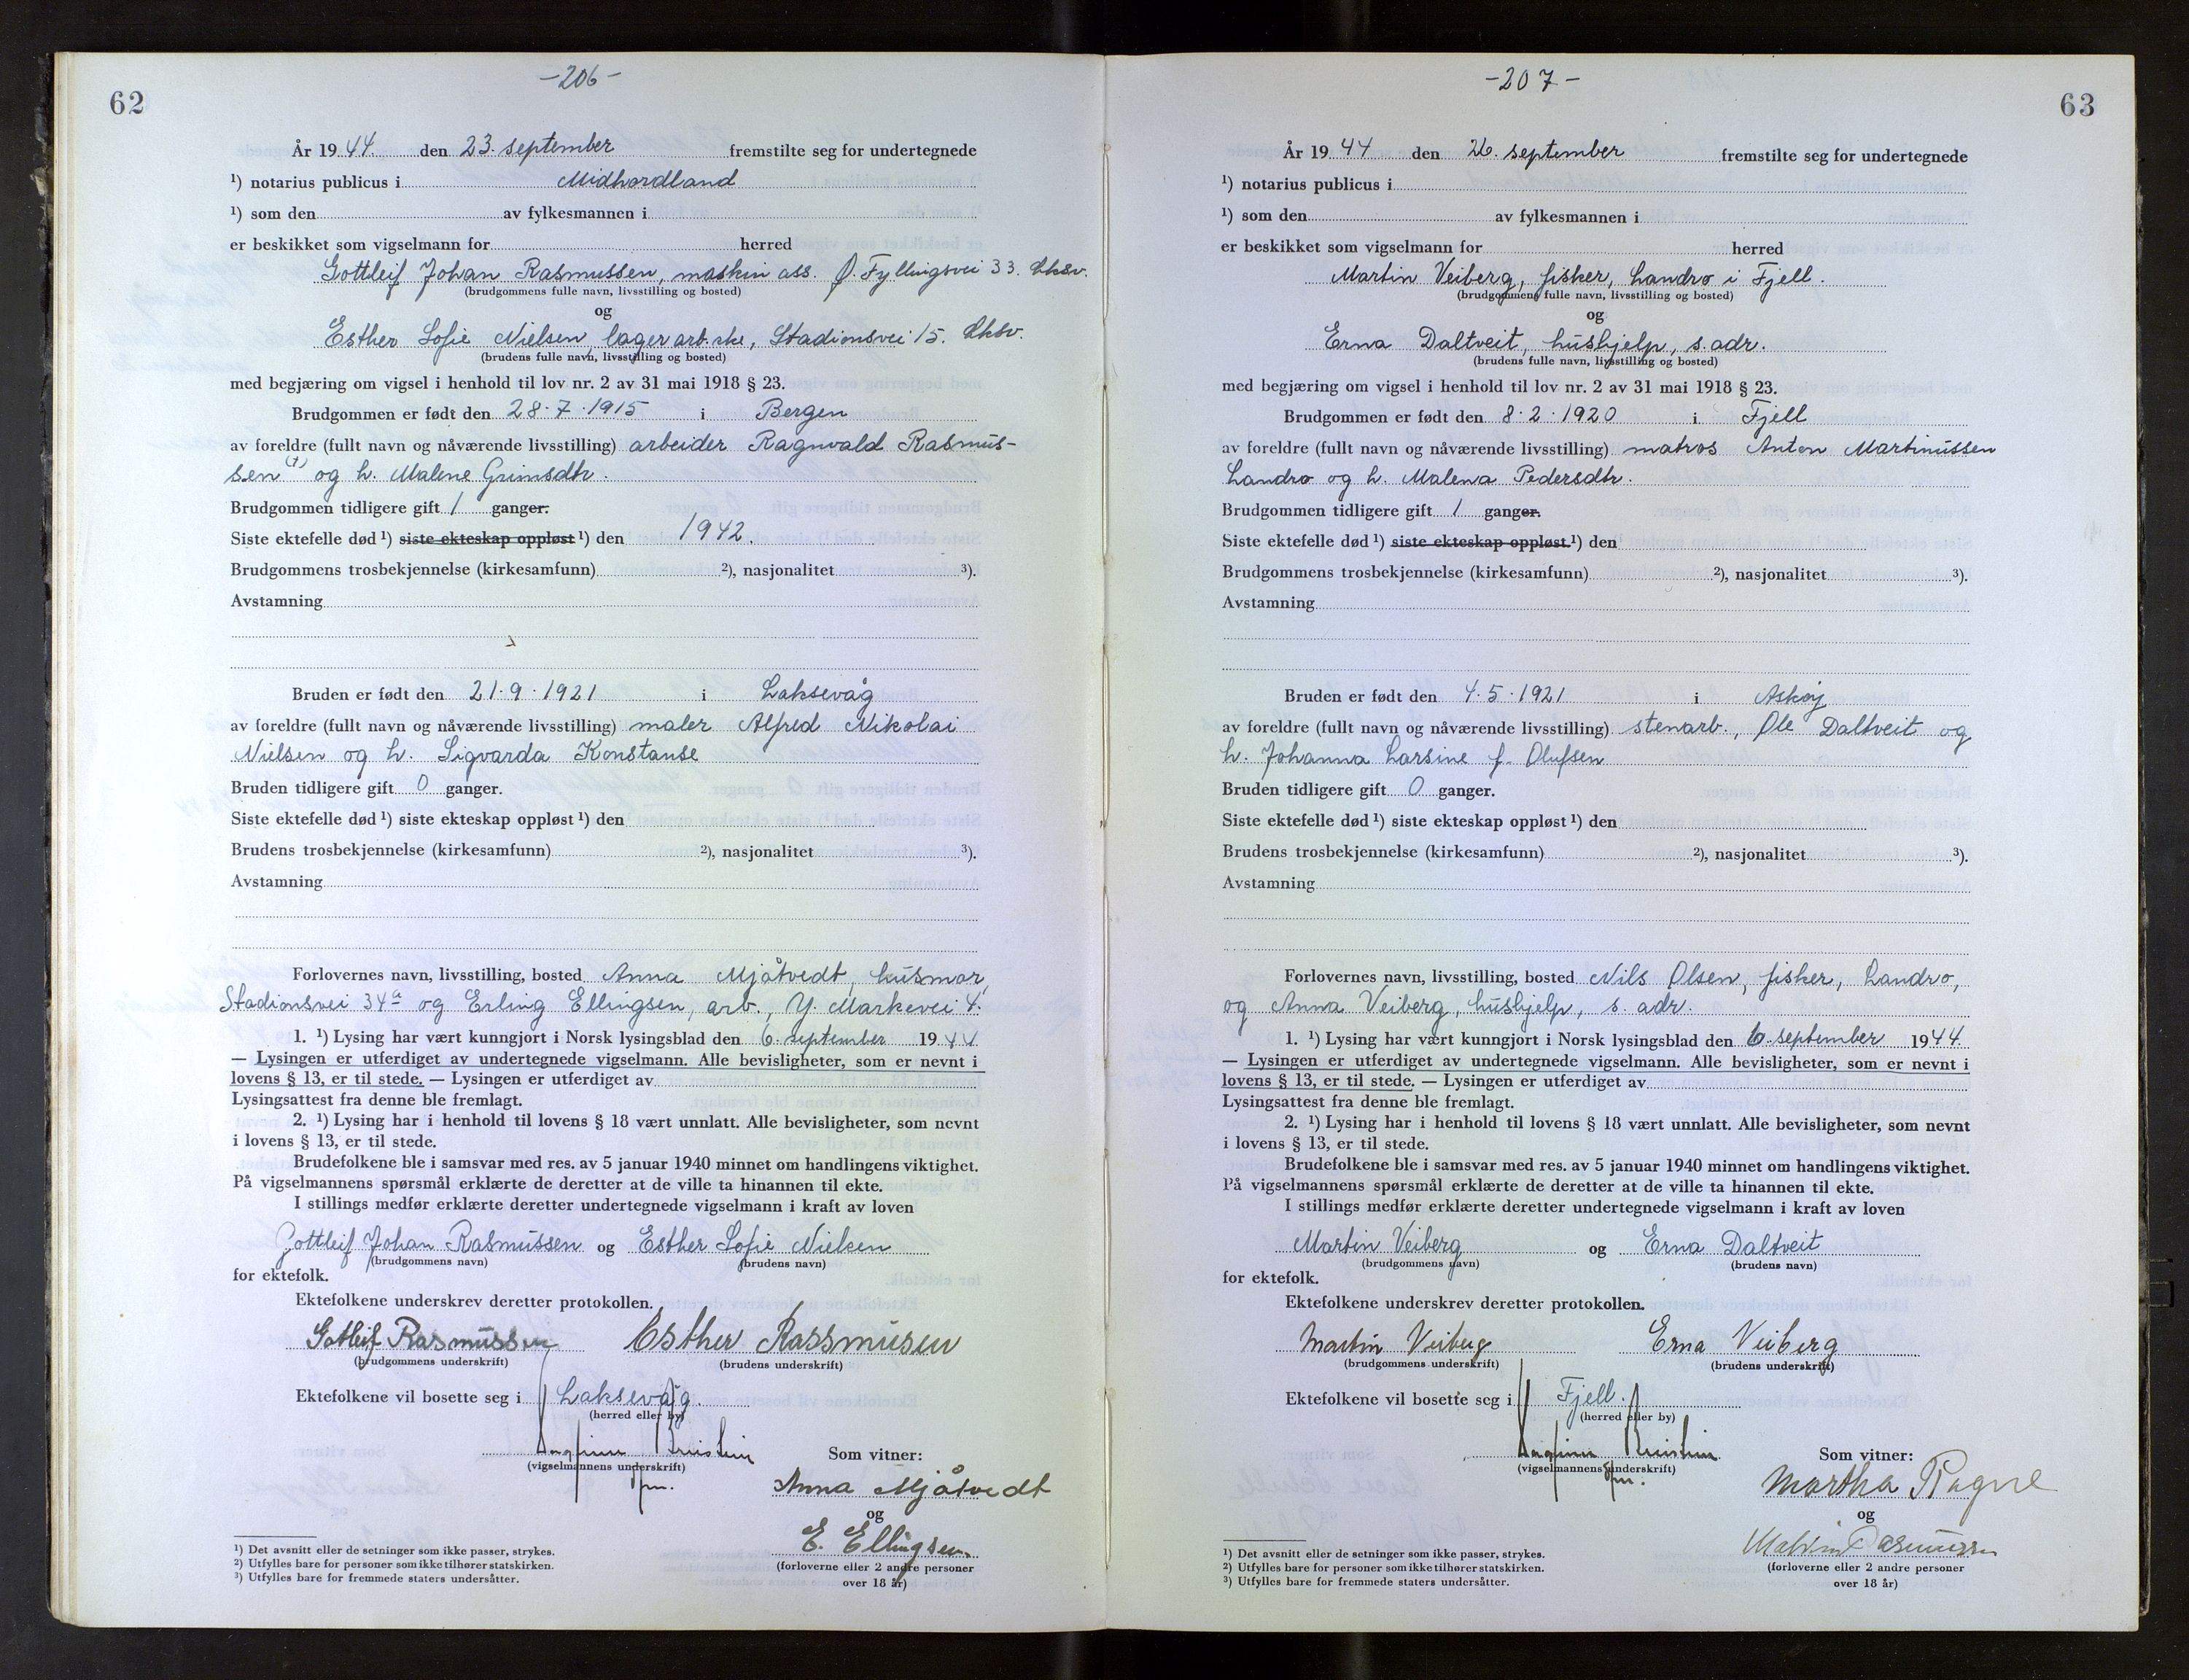 62
-206-
År 19 44. den 23. september fremstilte seg for undertegnede
¹) notarius publicus i Midhordland
¹) som den av fylkesmannen i
er beskikket som vigselmann for herred
Gottleif Johan Rasmussen, maskin ass. Ø. Fyllingsvei 33. Lksv.
(brudgommens fulle navn, livsstilling og bosted)
og
Esther Sofie Nielsen, lagerarb.ske, Stadionsvei 15. Lksv.
(brudens fulle navn, livsstilling og bosted)
med begjæring om vigsel i henhold til lov nr. 2 av 31 mai 1918 § 23.
Brudgommen er født den 28·7·1915 i Bergen
av foreldre (fullt navn og nåværende livsstilling) arbeider Ragnvald Rasmus-
sen (†) og h. Malene Grimsdtr.
Brudgommen tidligere gift 1 ganger.
Siste ektefelle død ¹) siste ekteskap oppløst ¹) den 1942.
Brudgommens trosbekjennelse (kirkesamfunn) ²), nasjonalitet ³).
Avstamning
Bruden er født den 21·9·1921 i Laksevåg
av foreldre (fullt navn og nåværende livsstilling) maler Alfred Nikolai
Nielsen og h. Sigvarda Konstanse
Bruden tidligere gift 0 ganger.
Siste ektefelle død ¹) siste ekteskap oppløst ¹) den
Brudens trosbekjennelse (kirkesamfunn) ²), nasjonalitet ³).
Avstamning
Forlovernes navn, livsstilling, bosted Anna Mjåtvedt, husmor,
Stadionsvei 34a og Erling Ellingsen, arb., Y. Markevei 4.
1. ¹) Lysing har vært kunngjort i Norsk lysingsblad den 6. september 1944
— Lysingen er utferdiget av undertegnede vigselmann. Alle bevisligheter, som er nevnt i
lovens § 13, er til stede. — Lysingen er utferdiget av
Lysingsattest fra denne ble fremlagt.
2. ¹) Lysing har i henhold til lovens § 18 vært unnlatt. Alle bevisligheter, som nevnt
i lovens § 13, er til stede.
Brudefolkene ble i samsvar med res. av 5 januar 1940 minnet om handlingens viktighet.
På vigselmannens spørsmål erklærte de deretter at de ville ta hinannen til ekte.
I stillings medfør erklærte deretter undertegnede vigselmann i kraft av loven
Gottleif Johan Rasmussen og Esther Sofie Nielsen
(brudgommens navn) (brudens navn)
for ektefolk.
Ektefolkene underskrev deretter protokollen.
Gotleif Rasmussen Esther Rassmusen
(brudgommens underskrift) (brudens underskrift)
Ektefolkene vil bosette seg i Laksevåg
(herred eller by)
Som vitner:
(vigselmannens underskrift)
Anna Mjåtvedt
og
E. Ellingsen
(forloverne eller 2 andre personer
over 18 år)
¹) Det avsnitt eller de setninger som ikke passer, strykes.
²) Utfylles bare for personer som ikke tilhører statskirken.
³) Utfylles bare for fremmede staters undersåtter.
63
-207-
År 19 44 den 26. september fremstilte seg for undertegnede
¹) notarius publicus i
¹) som den av fylkesmannen i
er beskikket som vigselmann for herred
Martin Veiberg, fisker, Landro i Fjell.
(brudgommens fulle navn, livsstilling og bosted)
og
Erna Daltveit, hushjelp, s. adr.
(brudens fulle navn, livsstilling og bosted)
med begjæring om vigsel i henhold til lov nr. 2 av 31 mai 1918 § 23.
Brudgommen er født den 8·2·1920 i Fjell
av foreldre (fullt navn og nåværende livsstilling) matros Anton Martinussen
Landro og h. Malena Pedersdtr.
Brudgommen tidligere gift 1 ganger.
Siste ektefelle død ¹) siste ekteskap oppløst ¹) den
Brudgommens trosbekjennelse (kirkesamfunn) ²), nasjonalitet ³).
Avstamning
Bruden er født den 4·5·1921 i Askøy
av foreldre (fullt navn og nåværende livsstilling) stenarb., Ole Daltveit og
h. Johanna Larsine f. Olufsen
Bruden tidligere gift 0 ganger.
Siste ektefelle død ¹) siste ekteskap oppløst ¹) den
Brudens trosbekjennelse (kirkesamfunn) ²), nasjonalitet ³).
Avstamning
Forlovernes navn, livsstilling, bosted Nils Olsen, fisker, Landro,
og Anna Veiberg, hushjelp, s. adr.
1. ¹) Lysing har vært kunngjort i Norsk lysingsblad den 6. september 1944
— Lysingen er utferdiget av undertegnede vigselmann. Alle bevisligheter, som er nevnt i
lovens § 13, er til stede. — Lysingen er utferdiget av
Lysingsattest fra denne ble fremlagt.
2. ¹) Lysing har i henhold til lovens § 18 vært unnlatt. Alle bevisligheter, som nevnt
i lovens § 13, er til stede.
Brudefolkene ble i samsvar med res. av 5 januar 1940 minnet om handlingens viktighet.
På vigselmannens spørsmål erklærte de deretter at de ville ta hinannen til ekte.
I stillings medfør erklærte deretter undertegnede vigselmann i kraft av loven
Martin Veiberg og Erna Daltveit
(brudgommens navn) (brudens navn)
for ektefolk.
Ektefolkene underskrev deretter protokollen.
Martin Veiberg Erna Veiberg
(brudgommens underskrift) (brudens underskrift)
Ektefolkene vil bosette seg i Fjell.
(herred eller by)
Som vitner:
(vigselmannens underskrift)
Martha
og
(forloverne eller 2 andre personer
over 18 år)
¹) Det avsnitt eller de setninger som ikke passer, strykes.
²) Utfylles bare for personer som ikke tilhører statskirken.
³) Utfylles bare for fremmede staters undersåtter.